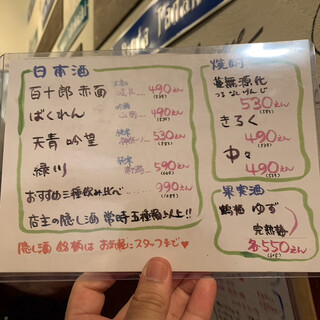 日本酒
百十郎 赤面 490えん
ばくれん 吟醸 490えん
天青 吟望 純米 530えん
緑川 純米 590えん
おすすめ三種飲み比べ 990えん
店主の隠し酒 常時五種類以上!!
隠し酒 銘柄は お気軽にスタッフまで♥
焼酎
蔓無源氏
つるなしげんじ
530えん
きろく
490えん
中々
490えん
果実酒
鶴梅 ゆず
完熟梅
各550えん